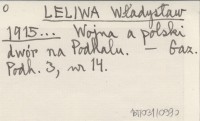 LELIWA Władysław
1915... Wojna a polski
dwór na Podhalu. — Gaz.
Podh. 3, nr 14.